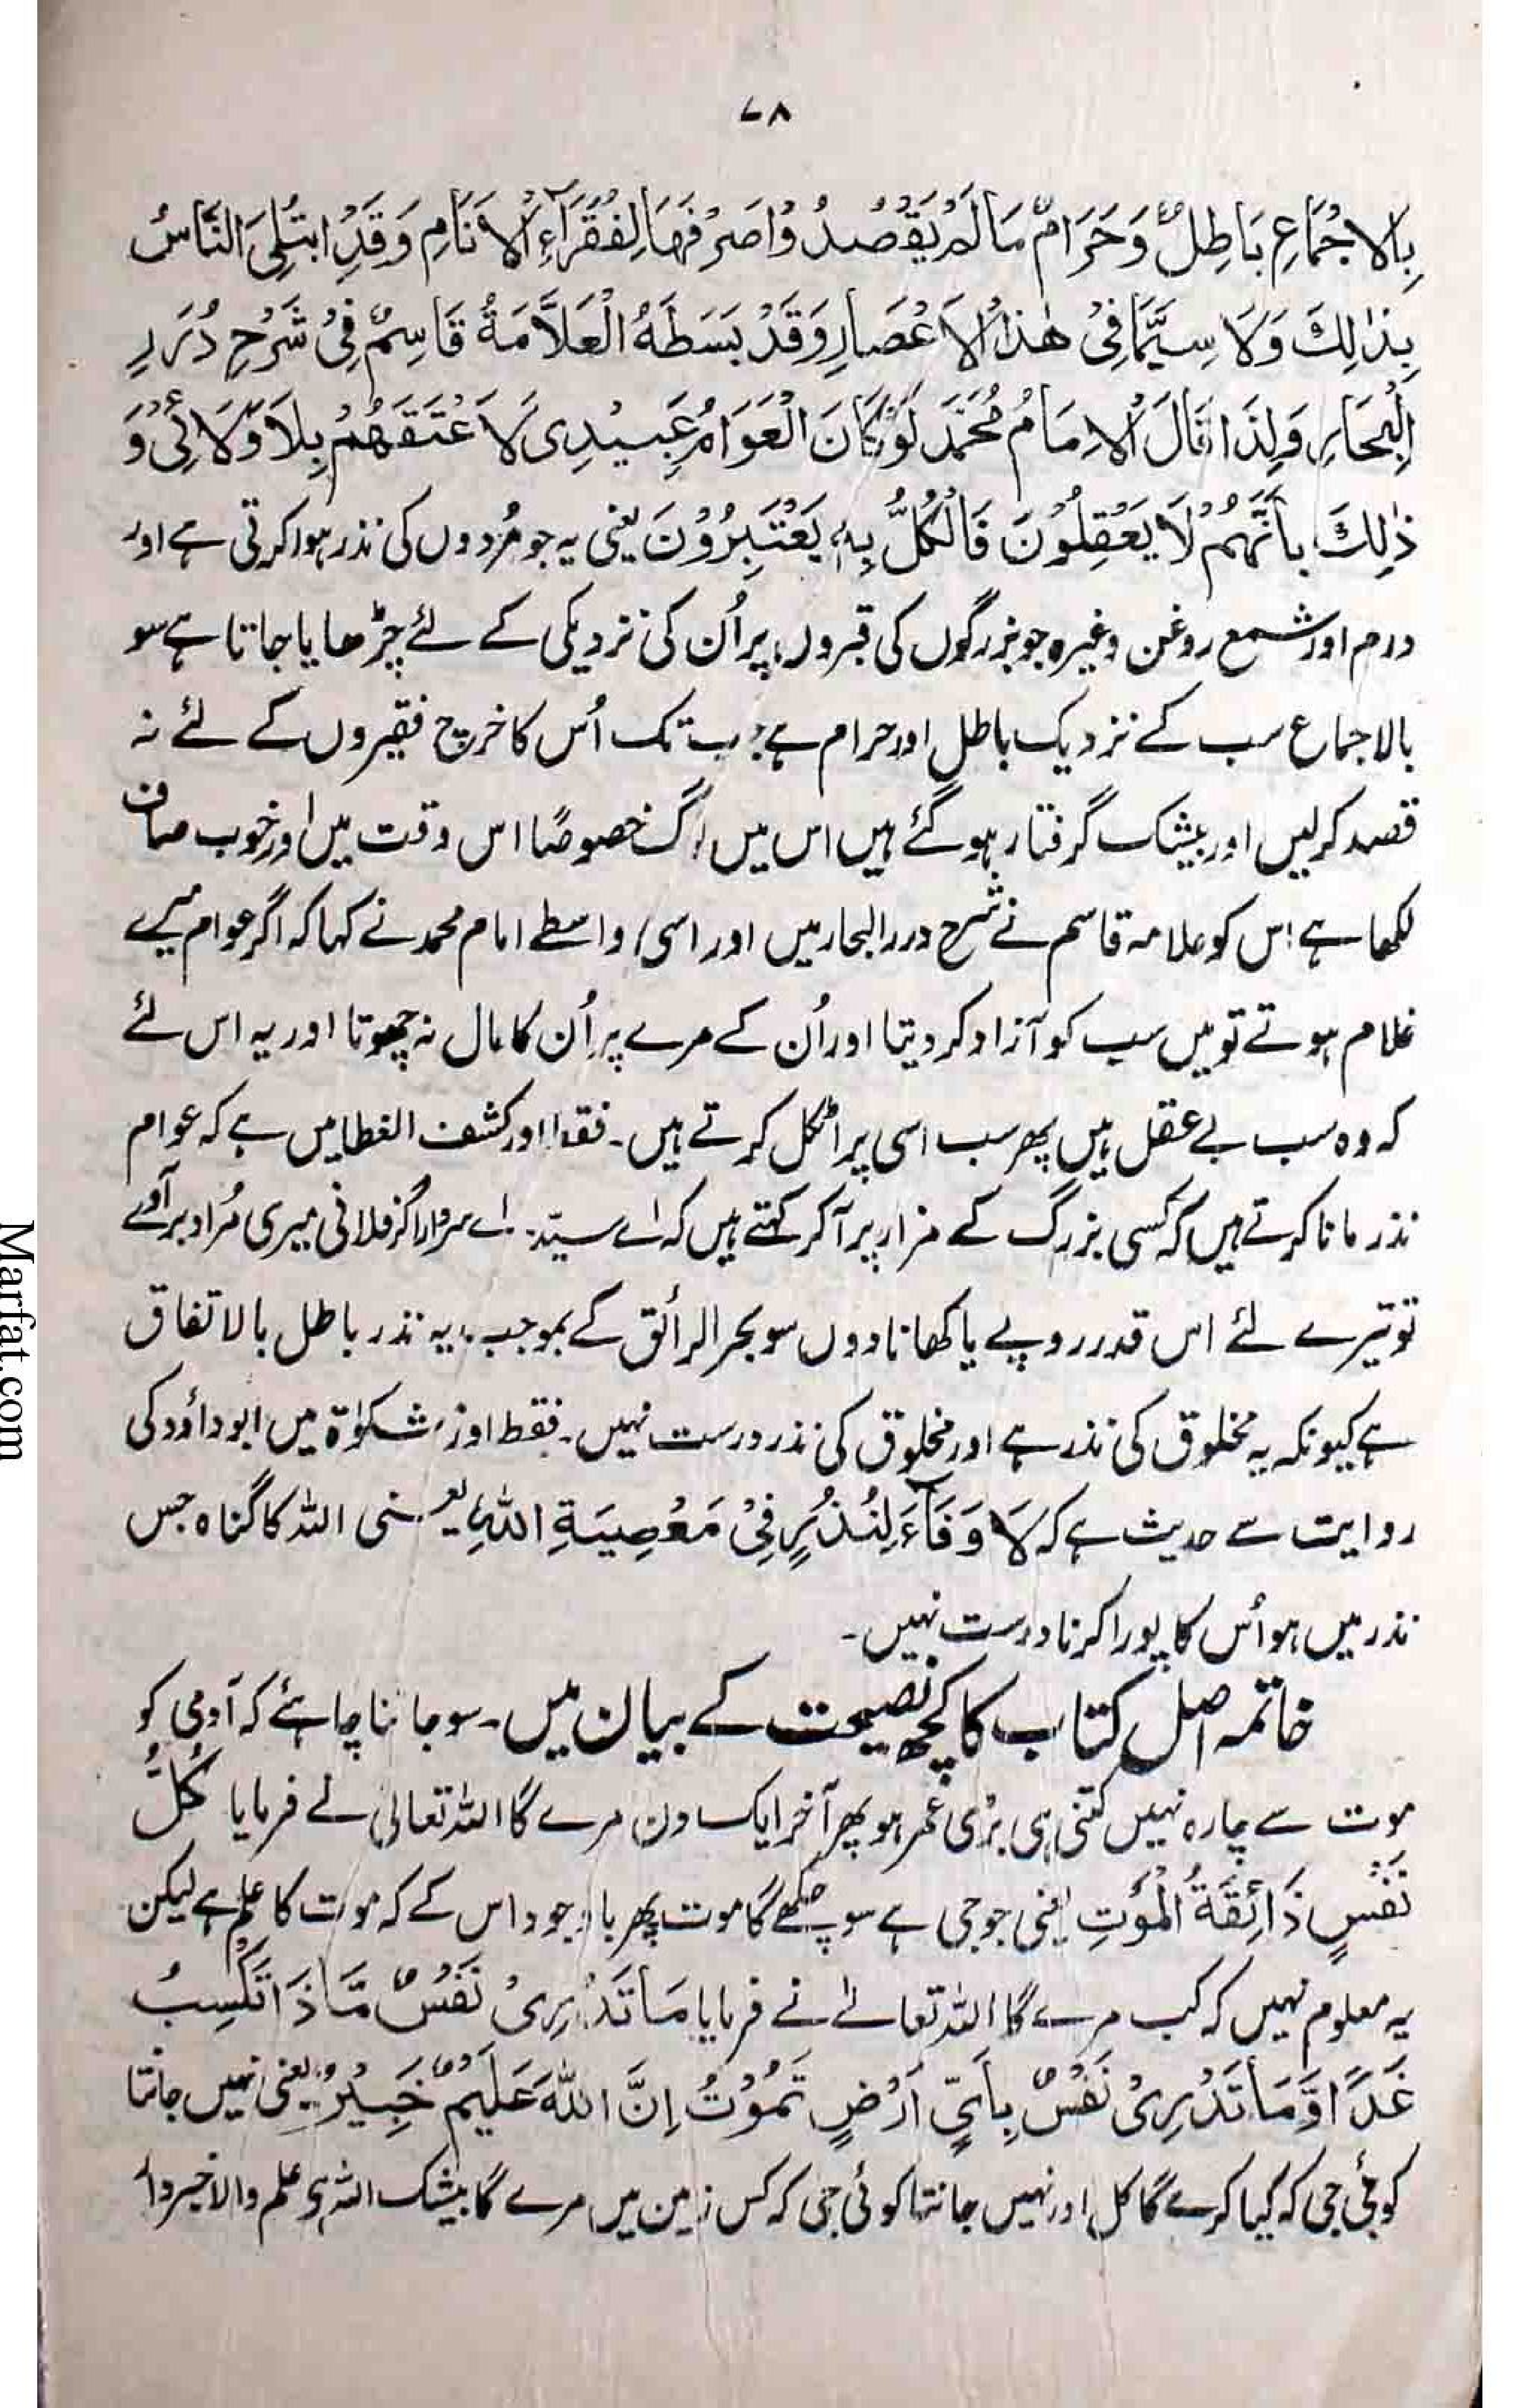 ۷۸
بِالْاِجْمَاعِ بَاطِلٌ وَّحَرَامٌ مَالَمْ يَقْصُدُوْاصَرْفَهَالِفُقَرَآءِ الْاَنَامِ وَقَدِ ابْتُلِیَ النَّاسُ
بِذٰلِكَ وَلَا سِیَّمَا فِیْ هٰذَا الْاَعْصَارِ وَقَدْ بَسَطَهُ الْعَلَّامَةُ قَاسِمٌ فِیْ شَرْحِ دُرَرِ
الْبِحَارِ وَلِذَا قَالَ الْاِمَامُ مُحَمَّد لَوْ كَانَ الْعَوَامُ عَبِیْدِی لَاَعْتَقَهُمْ بِلَا وَلَائِیْ وَ
ذٰلِكَ بِاَنَّهُمْ لَا یَعْقِلُوْنَ فَالْكُلُّ بِهٖ یَعْتَبِرُوْنَ یعنی یہ جو مُردوں کی نذر ہوا کرتی ہے اور
درم اور شمع روغن وغیرہ جو بزرگوں کی قبروں پر اُن کی نزدیکی کے لئے چڑھایا جاتا ہے سو
بالاجماع سب کے نزدیک باطل اور حرام ہے جب تک اُس کا خرچ فقیروں کے لئے نہ
قصد کرلیں اور بیشک گرفتار ہوگئے ہیں اس میں لوگ خصوصًا اس وقت میں اور خوب صاف
لکھا ہے اس کو علامہ قاسم نے شرح درر البحار میں اور اسی واسطے امام محمد نے کہا کہ اگر عوام میرے
غلام ہوتے تو میں سب کو آزاد کر دیتا اور اُن کے مرے پر اُن کا مال نہ چھوتا اور یہ اس لئے
کہ وہ سب بے عقل ہیں پھر سب اسی پر اٹکل کرتے ہیں۔ فقط اور کشف الغطا میں ہے کہ عوام
نذر مانا کرتے ہیں کہ کسی بزرگ کے مزار پر آکر کہتے ہیں کہ اے سیّد۔ اے سردار اگر فلانی میری مُراد برآوے
تو تیرے لئے اس قدر روپے یا کھانا دوں سو بحر الرائق کے بموجب یہ نذر باطل بالاتفاق
ہے کیونکہ یہ مخلوق کی نذر ہے اور مخلوق کی نذر درست نہیں۔ فقط اور مشکوٰۃ میں ابوداؤد کی
روایت سے حدیث ہے کہ لَا وَفَآءَ لِنُذُرٍ فِیْ مَعْصِیَةِ اللّٰهِ یعنی اللہ کا گناہ جس
نذر میں ہو اُس کا پورا کرنا درست نہیں۔
خاتمہ اصل کتاب کا کچھ نصیحت کے بیان میں۔ سو جاننا چاہئے کہ آدمی کو
موت سے چارہ نہیں کتنی ہی بڑی عمر ہو پھر آخر ایک دن مرے گا اللہ تعالیٰ نے فرمایا كُلُّ
نَفْسٍ ذَآئِقَةُ الْمَوْتِ یعنی جو جی ہے سو چکھے گا موت پھر باوجود اس کے کہ موت کا علم ہے لیکن
یہ معلوم نہیں کہ کب مرے گا اللہ تعالےٰ نے فرمایا مَا تَدْرِیْ نَفْسٌ مَّاذَا تَكْسِبُ
غَدًا وَّمَا تَدْرِیْ نَفْسٌ بِاَیِّ اَرْضٍ تَمُوْتُ اِنَّ اللّٰهَ عَلِیْمٌ خَبِیْرٌ یعنی نہیں جانتا
کوئی جی کہ کیا کرے گا کل اور نہیں جانتا کوئی جی کہ کس زمین میں مرے گا بیشک اللہ ہی علم والا خبردار
Marfat.com